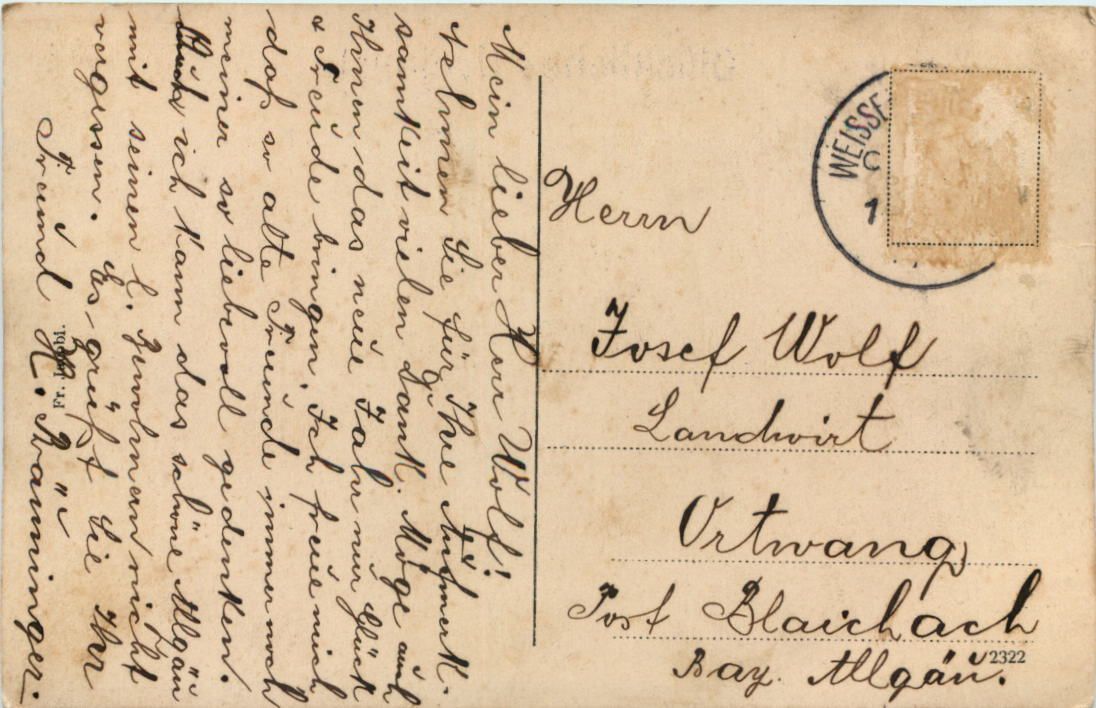 Mein lieber Herr Wolf!
Nehmen Sie für Ihre Aufmerk-
samkeit vielen Dank. Möge auch
Ihnen das neue Jahr nur Glück
& Freude bringen. Ich freue mich
daß so alte Freunde immer noch
meiner so liebevoll gedenken.
Auch ich kann das schöne Allgäu
mit seinen l. Bewohnern nicht
vergessen. Es grüßt Sie Ihr
Freund
WEISSE
Herrn
Josef Wolf
Landwirt
Ortwang
Post Blaichach
Bay. Allgäu.
2322